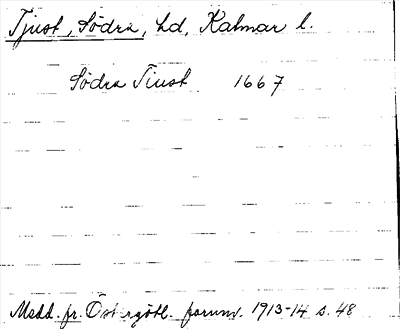 Tjust, Södra, hd, Kalmar l.
Södra Tiust 1667
Medd. fr. Östergötl. fornm. 1913-14 s. 48